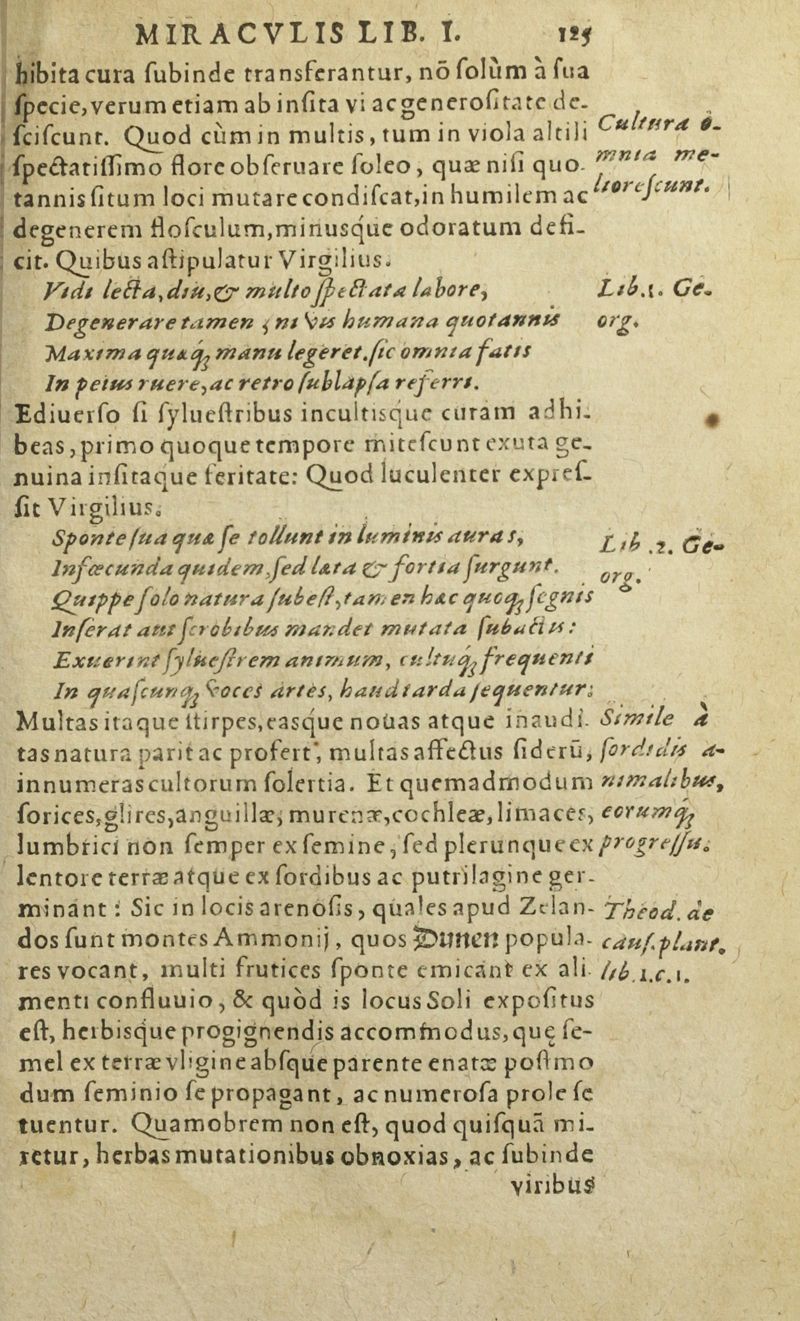 MIRACVLIS LIB. I. 125
hibita cura ſubinde transferantur, nõ ſolùm à ſua
ſpecie, verum etiam ab inſita vi ac generoſitate de-
ſciſcunt. Quod cùm in multis, tum in viola altili
Cultura o-
ſpectatiſſimo flore obſeruare ſoleo, quæ niſi quo-
mnia me-
tannis ſitum loci mutare condiſcat, in humilem ac
lioreſcunt.
degenerem floſculum, minusque odoratum defi-
cit. Quibus aſtipulatur Virgilius.
Vidi lecta, diu, & multo ſpectata labore,
Lib.1. Ge-
Degenerare tamen, ni vis humana quotannis
org.
Maxima quæq; manu legeret. ſic omnia fatis
In peius ruere, ac retro ſublapſa referri.
Ediuerſo ſi ſylueſtribus incultisque curam adhi-
beas, primo quoque tempore miteſcunt exuta ge-
nuina inſitaque feritate: Quod luculenter expreſ-
ſit Virgilius.
Sponte ſua quæ ſe tollunt in luminis auras,
Lib .2. Ge-
Infœcunda quidem, ſed læta & fortia ſurgunt.
org.
Quippe ſolo natura ſubeſt, tamen hæc quoq; ſegnis
Inſerat aut ſcrobibus mandet mutata ſubactis:
Exuerint ſylueſtrem animum, cultuq; frequenti
In quaſcunq; voces artes, haud tarda ſequentur.
Multas itaque ſtirpes, easque notas atque inaudi-
Simile à
tas natura parit ac profert, multas affectus ſiderũ,
ſordidis a-
innumeras cultorum ſolertia. Et quemadmodum
nimalibus,
ſorices, glires, anguillæ, murenæ, cochleæ, limaces,
eorumq;
lumbrici non ſemper ex ſemine, ſed plerunque ex
progreſſu.
lentore terræ atque ex ſordibus ac putrilagine ger-
minant: Sic in locis arenoſis, quales apud Zelan-
Theod. de
dos ſunt montes Ammonij, quos Dunen popula-
cauſ. plant.
res vocant, multi frutices ſponte emicant ex ali-
lib.1.c.1.
menti confluuio, & quòd is locus Soli expoſitus
eſt, herbisque progignendis accommodus, quę ſe-
mel ex terræ vligine abſque parente enatæ poſtmo
dum ſeminio ſe propagant, ac numeroſa prole ſe
tuentur. Quamobrem non eſt, quod quiſquã mi-
retur, herbas mutationibus obnoxias, ac ſubinde
viribus